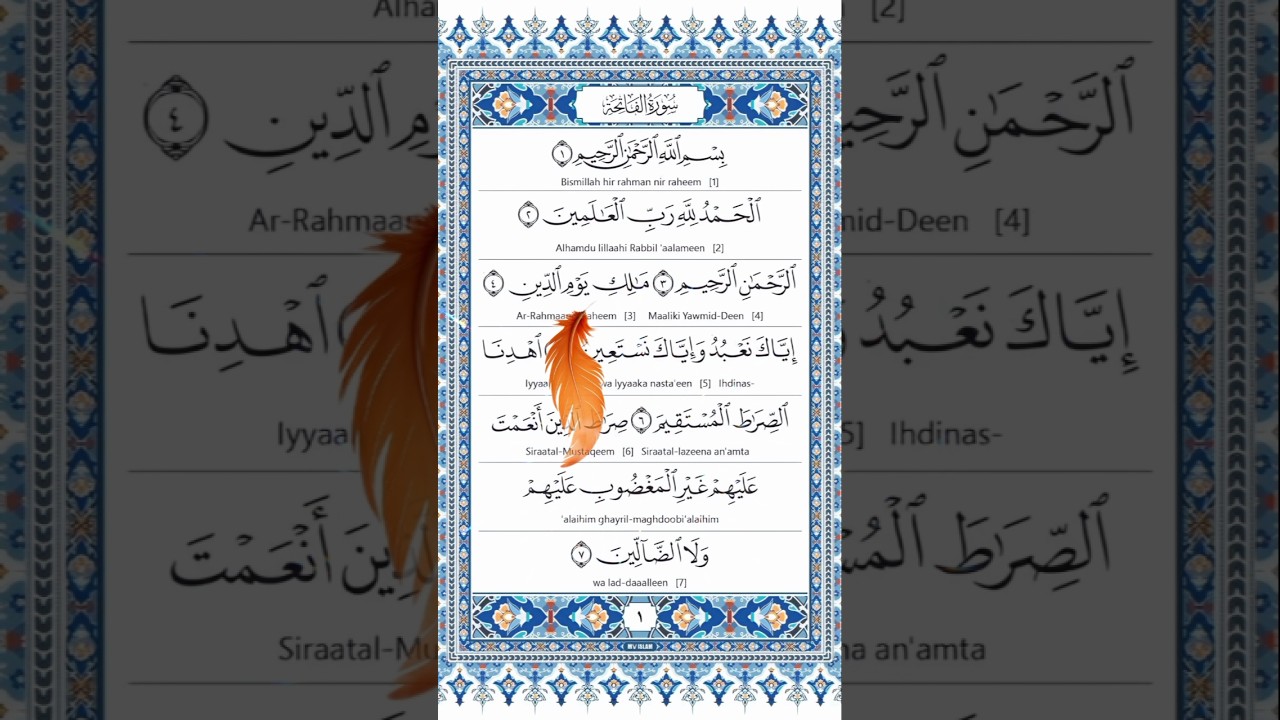 سُورَةُ الفَاتِحَةِ
بِسْمِ ٱللَّهِ ٱلرَّحْمَٰنِ ٱلرَّحِيمِ ١
Bismillah hir rahman nir raheem [1]
ٱلْحَمْدُ لِلَّهِ رَبِّ ٱلْعَٰلَمِينَ ٢
Alhamdu lillaahi Rabbil 'aalameen [2]
ٱلرَّحْمَٰنِ ٱلرَّحِيمِ ٣ مَٰلِكِ يَوْمِ ٱلدِّينِ ٤
[3] Maaliki Yawmid-Deen [4]
إِيَّاكَ نَعْبُدُ وَإِيَّاكَ نَسْتَعِينُ ٱهْدِنَا
wa lyyaaka nasta'een [5] Ihdinas-
ٱلصِّرَٰطَ ٱلْمُسْتَقِيمَ ٦ صِرَٰطَ ٱلَّذِينَ أَنْعَمْتَ
Siraatal-Mustaqeem [6] Siraatal-lazeena an'amta
عَلَيْهِمْ غَيْرِ ٱلْمَغْضُوبِ عَلَيْهِمْ
'alaihim ghayril-maghdoobi'alaihim
وَلَا ٱلضَّآلِّينَ ٧
wa lad-daaalleen [7]
١